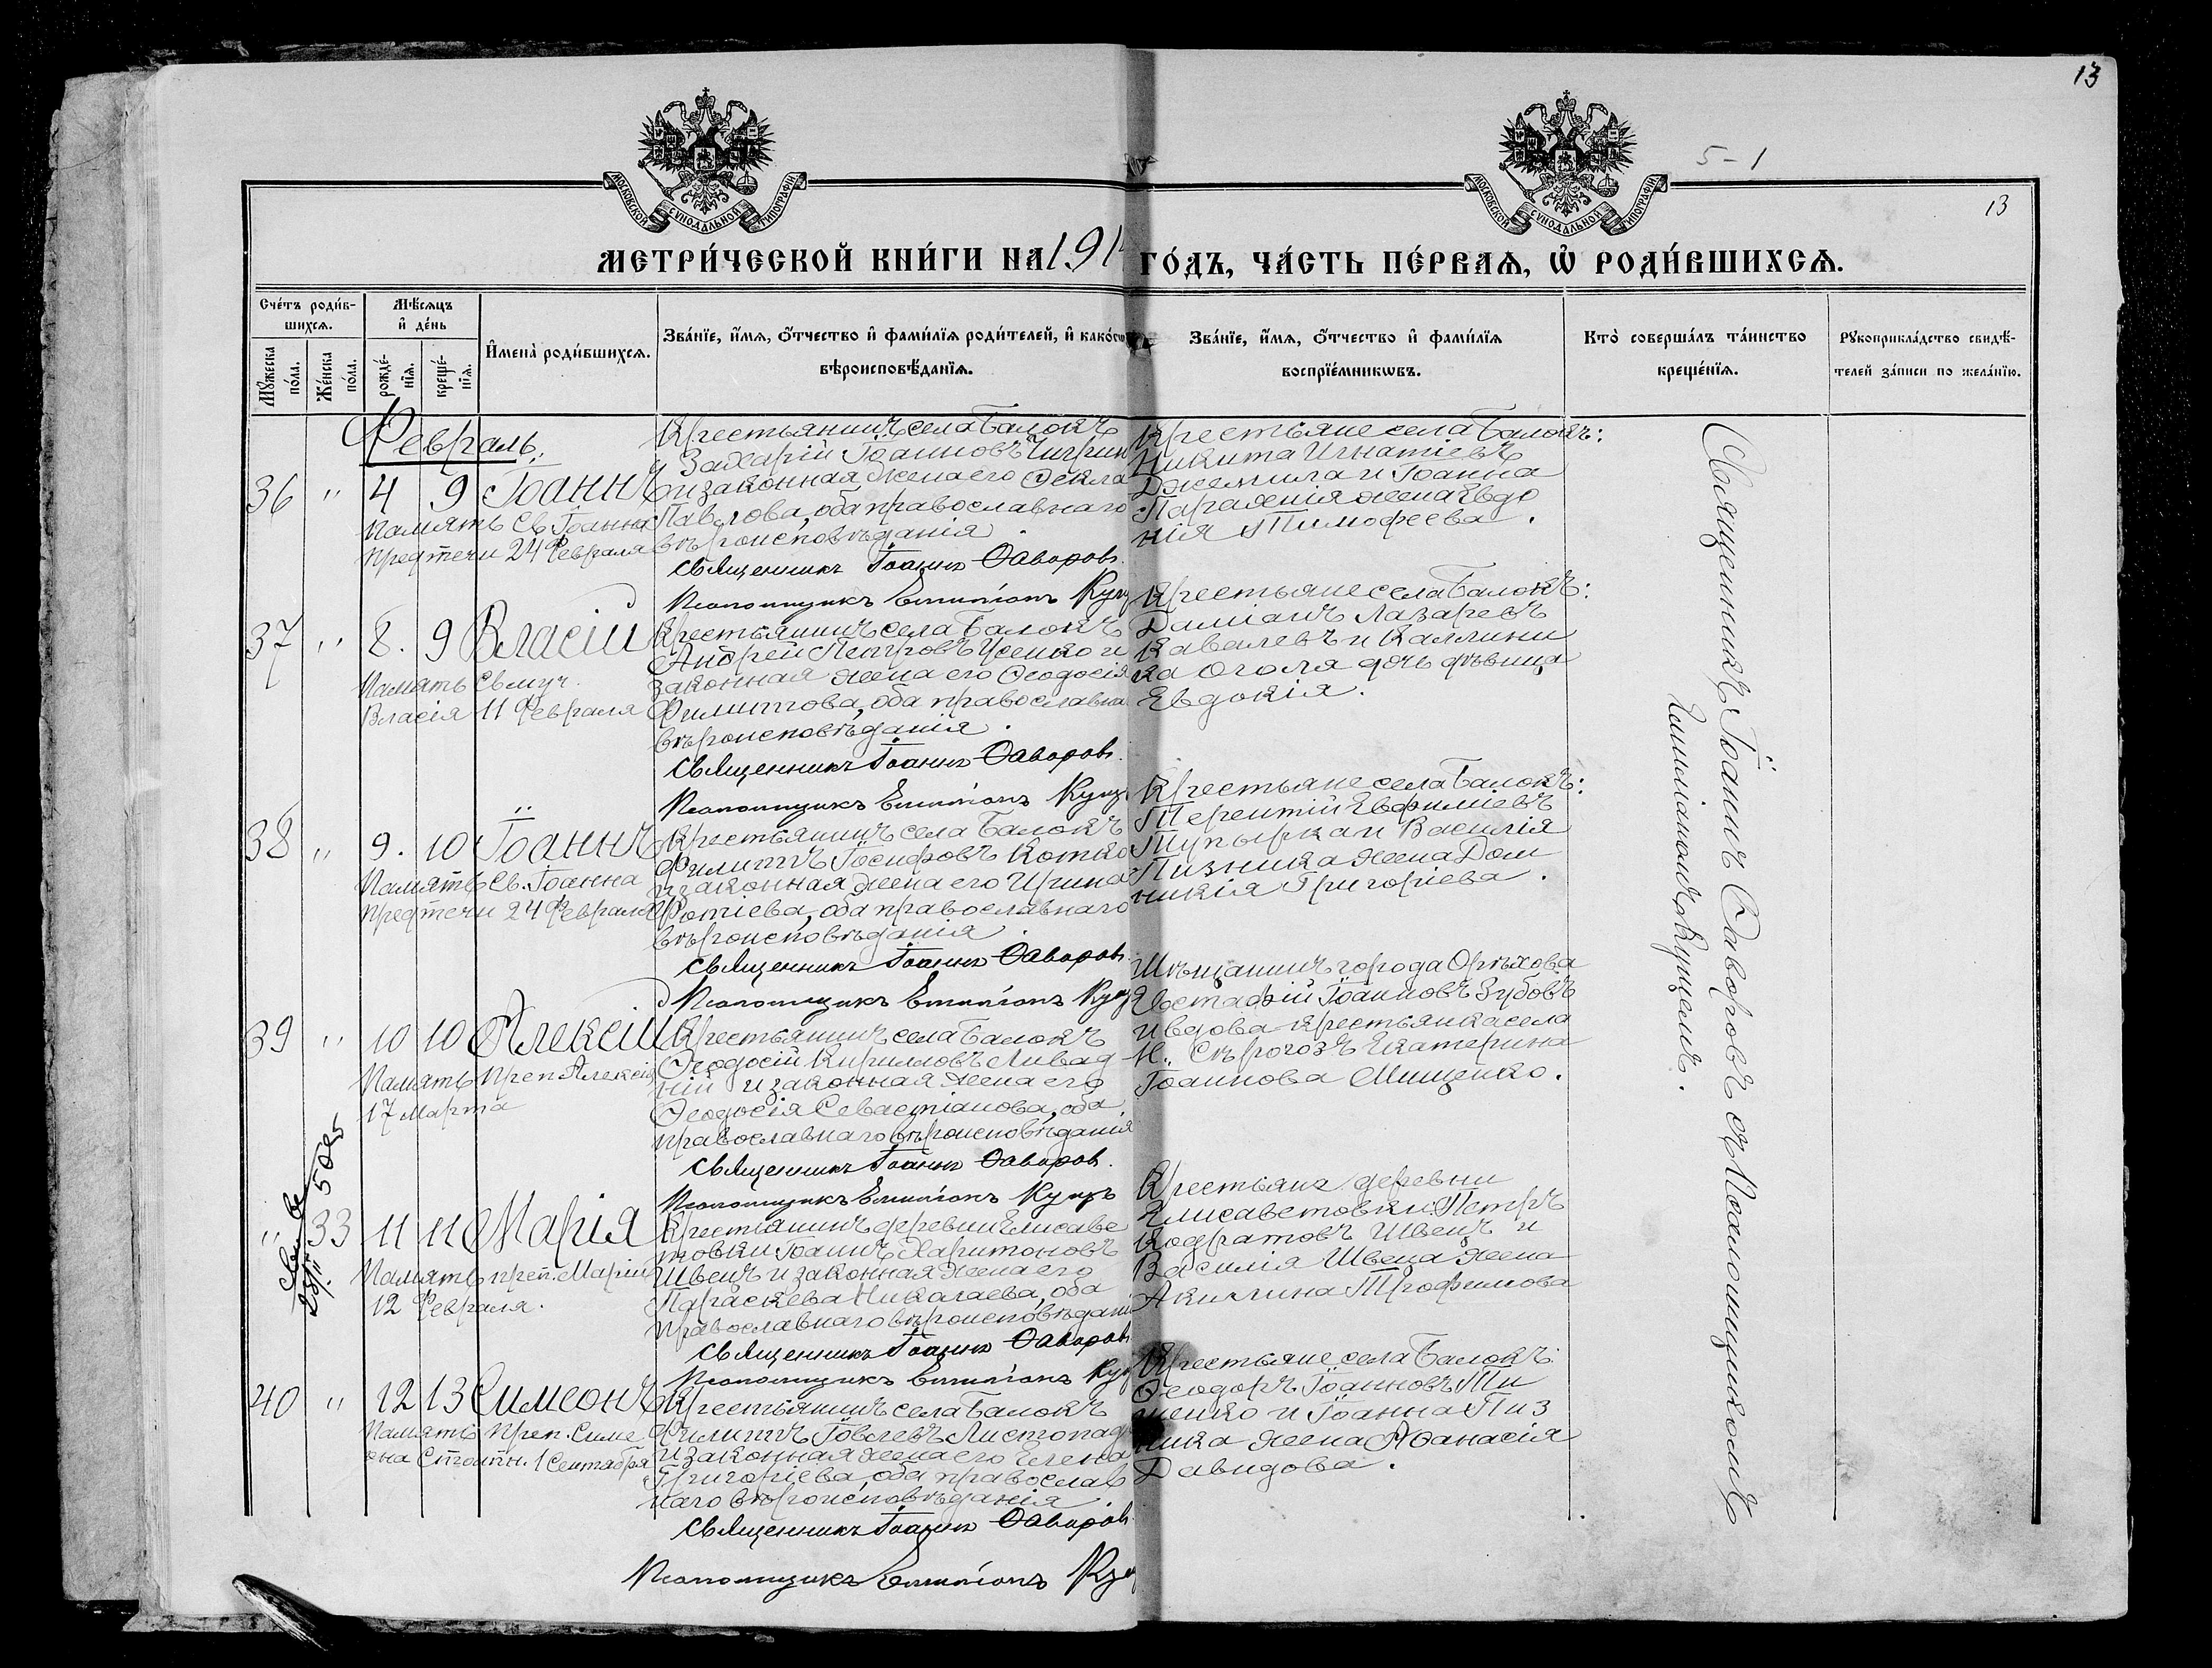 13
5-1
13
МОСКОВСКОЙ СѴНОДАЛЬНОЙ ТИПОГРАФІИ
МОСКОВСКОЙ СѴНОДАЛЬНОЙ ТИПОГРАФІИ
МЕТРИ́ЧЕСКОЙ КНИ́ГИ НА 191
ГО́ДЪ, ЧА́СТЬ ПЕ́РВАѦ, Ѡ҆ РОДИ́ВШИХСѦ.
Сче́тъ роди́в-
шихсѧ.
Мꙋ́жеска по́ла.
Же́нска по́ла.
Мѣ́сѧцъ
и҆ де́нь
рожде́-
нїѧ.
креще́-
нїѧ.
И҆мена̀ роди́вшихсѧ.
Зва́нїе, и҆́мѧ, ѻ҆́тчество и҆ фами́лїѧ роди́телей, и҆ како́гѡ
вѣроисповѣ́данїѧ.
Зва́нїе, и҆́мѧ, ѻ҆́тчество и҆ фами́лїѧ
воспрїе́мникѡвъ.
Кто̀ соверша́лъ та́инство
креще́нїѧ.
Рꙋкоприкла́дство свидѣ́-
телей за́писи по жела́нїю.
Февраль.
36 " 4 9 Іоаннъ
Память Св. Іоанна
Предтечи 24 Февраля
Крестьянинъ села Балокъ
Захарій Іоанновъ Чигрин
и законная жена его Ѳекла
Павлова, оба православнаго
вѣроисповѣданія.
Священникъ Іоаннъ Ѳаворовъ.
Псаломщикъ Емиліанъ Купц
Крестьяне села Балокъ:
Никита Игнатіевъ
Джемила и Іоанна
Парахнія жена Евдо
кія Тимофеева.
37 " 8. 9 Власій
Память Св муч.
Власія 11 Февраля
Крестьянинъ села Балокъ
Андрей Петровъ Усенко и
законная жена его Ѳеодосія
Филиппова, оба православна
вѣроисповѣданія.
Священникъ Іоаннъ Ѳаворовъ.
Псаломщикъ Емиліанъ Купц
Крестьяне села Балокъ:
Даміанъ Лазаревъ
Ковалевъ и Каллини
ка Оголя дочь дѣвица
Евдокія.
38 " 9. 10 Іоаннъ
Память Св. Іоанна
Предтечи 24 Февраля
Крестьянинъ села Балокъ
Филиппъ Іосифовъ Котко
и законная жена его Ирина
Фотіева, оба православнаго
вѣроисповѣданія.
Священникъ Іоаннъ Ѳаворовъ.
Псаломщикъ Емиліанъ Купц
Крестьяне села Балокъ:
Терентій Евфиміевъ
Тупырка и Василія
Пизника жена Дом
никія Григоріева.
39 " 10 10 Алексій
Память Преп Алексія
17 Марта
Крестьянинъ села Балокъ
Ѳеодосій Кирилловъ Ливад
ній и законная жена его
Ѳеодосія Севастіанова, оба
православнаго вѣроисповѣданія
Священникъ Іоаннъ Ѳаворовъ.
Псаломщикъ Емиліанъ Купцъ
Мѣщанинъ города Орѣхова
Евстафій Іоанновъ Зубовъ
и вдова крестьянка села
Н. Сѣрогозъ Екатерина
Іоаннова Мищенко.
" 33 11 11 Марія
Память преп. Маріи
12 Февраля.
Крестьянинъ деревни Елисаве
товки Іоаннъ Харитоновъ
Швецъ и законная жена его
Параскева Николаева, оба
Православнаго вѣроисповѣдані
Священникъ Іоаннъ Ѳаворовъ
Псаломщикъ Емиліанъ Купц
Крестьяне деревни
Елисаветовки: Петръ
Кодратовъ Швецъ и
Василія Швеца жена
Акилина Трофимова
40 " 12 13 Симеонъ
Память Преп. Симе
она Столпн. 1 Сентября
Крестьянинъ села Балокъ
Филиппъ Іовлевъ Листопад
и законная жена его Елена
Григоріева, оба православ
наго вѣроисповѣданія.
Священникъ Іоаннъ Ѳаворовъ
Псаломщикъ Емиліанъ Купц
Крестьяне села Балокъ:
Ѳеодоръ Іоанновъ Ти
щенко и Іоанна Пиз
ника жена Аѳанасія
Давидова.
Священникъ Іоаннъ Ѳаворовъ съ Псаломщикомъ
Емиліаномъ Купцемъ.